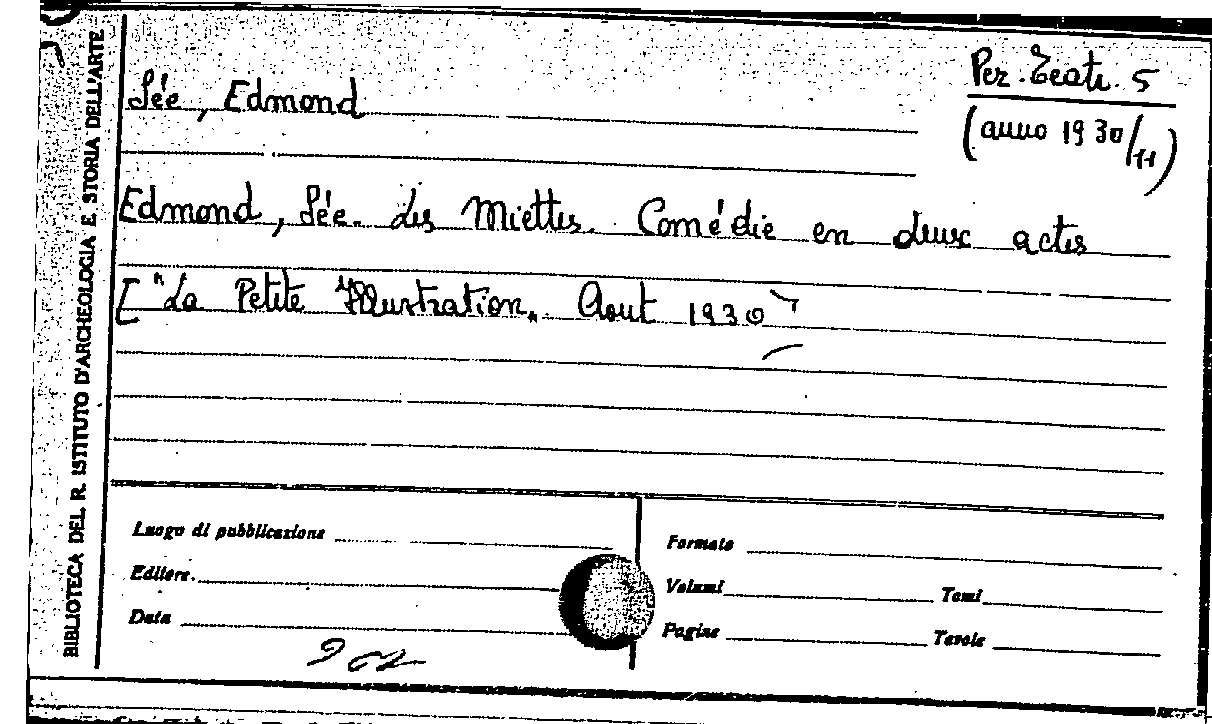 BIBLIOTECA DEL R. ISTITUTO D'ARCHEOLOGIA E STORIA DELL'ARTE
Sée, Edmond
Per. Teatr. 5
(anno 1930/11)
Edmond, Sée. Les Miettes. Comédie en deux actes
["La Petite Illustration. Aout 1930"]
Luogo di pubblicazione
Editore
Data
Formato
Volumi Tomi
Pagine Tavole
902